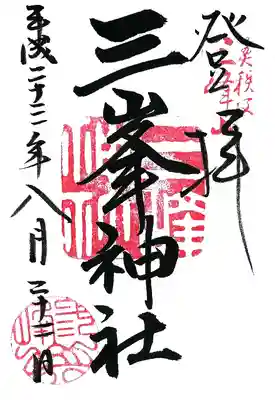 奥秩父
登拝
三峯神社
平成二十二年八月二十二日